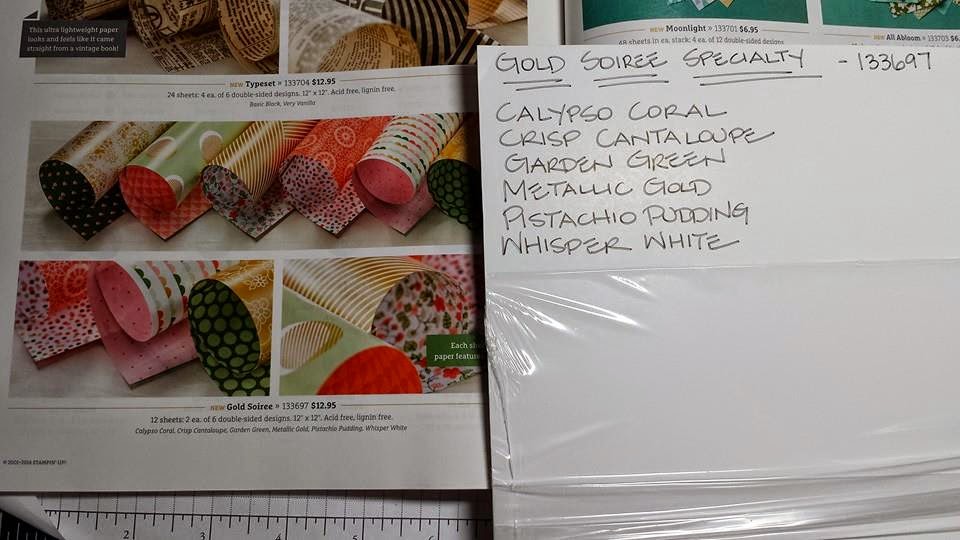 This ultra lightweight paper
looks and feels like it came
straight from a vintage book!
NEW Typeset » 133704 $12.95
24 sheets: 4 ea. of 6 double-sided designs. 12" x 12". Acid free, lignin free.
Basic Black, Very Vanilla
Each
paper featur
NEW Gold Soiree » 133697 $12.95
12 sheets: 2 ea. of 6 double-sided designs. 12" x 12". Acid free, lignin free.
Calypso Coral, Crisp Cantaloupe, Garden Green, Metallic Gold, Pistachio Pudding, Whisper White
STAMPIN' UP!
NEW Moonlight » 133701 $6.95
48 sheets in ea. stack: 4 ea. of 12 double-sided designs
NEW All Abloom » 133703 $6.
GOLD SOIREE SPECIALTY - 133697
CALYPSO CORAL
CRISP CANTALOUPE
GARDEN GREEN
METALLIC GOLD
PISTACHIO PUDDING
WHISPER WHITE
2 3 4 5 6